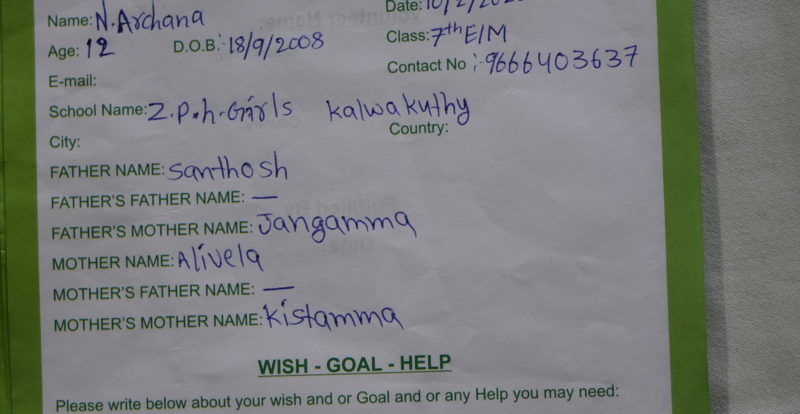 Name: N. Archana Date: 10/2/202
Age: 12 D.O.B:- 18/9/2008 Class: 7th E/M
E-mail: Contact No :- 9666403637
School Name: Z.p.h.Girls kalwakuthy
City: Country:
FATHER NAME: Santhosh
FATHER'S FATHER NAME: —
FATHER'S MOTHER NAME: Jangamma
MOTHER NAME: Alivela
MOTHER'S FATHER NAME: —
MOTHER'S MOTHER NAME: Kistamma
WISH - GOAL - HELP
Please write below about your wish and or Goal and or any Help you may need: